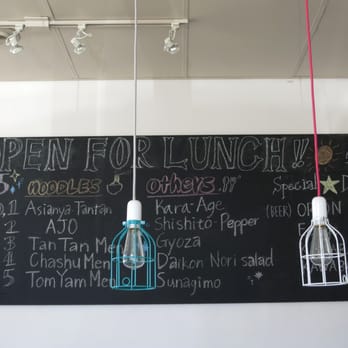 OPEN FOR LUNCH!!
NOODLES others Special
1 Asianya Tantan Kara-Age (BEER)
2 AJO Shishito-Pepper
3 Tan Tan Men Gyoza
4 Chashu Men Daikon Nori salad
5 Tom Yam Men Sunagimo